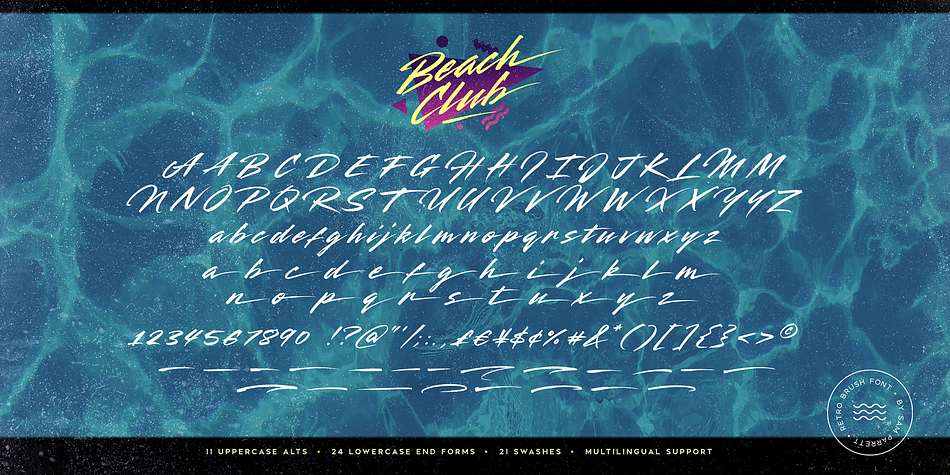 Beach
Club
A A B C D E F G H H I I J J K L M M
N N O P Q R S T U U V V W W X X Y Y Z
a b c d e f g h i j k l m n o p q r s t u v w x y z
a b c d e f g h i j k l m
n o p q r s t u x y z
1 2 3 4 5 6 7 8 9 0 !?@"'/;:.,£€¥$¢%#&*()[]{}<>©
11 UPPERCASE ALTS • 24 LOWERCASE END FORMS • 21 SWASHES • MULTILINGUAL SUPPORT
RETRO BRUSH FONT • BY SAM PARRETT •